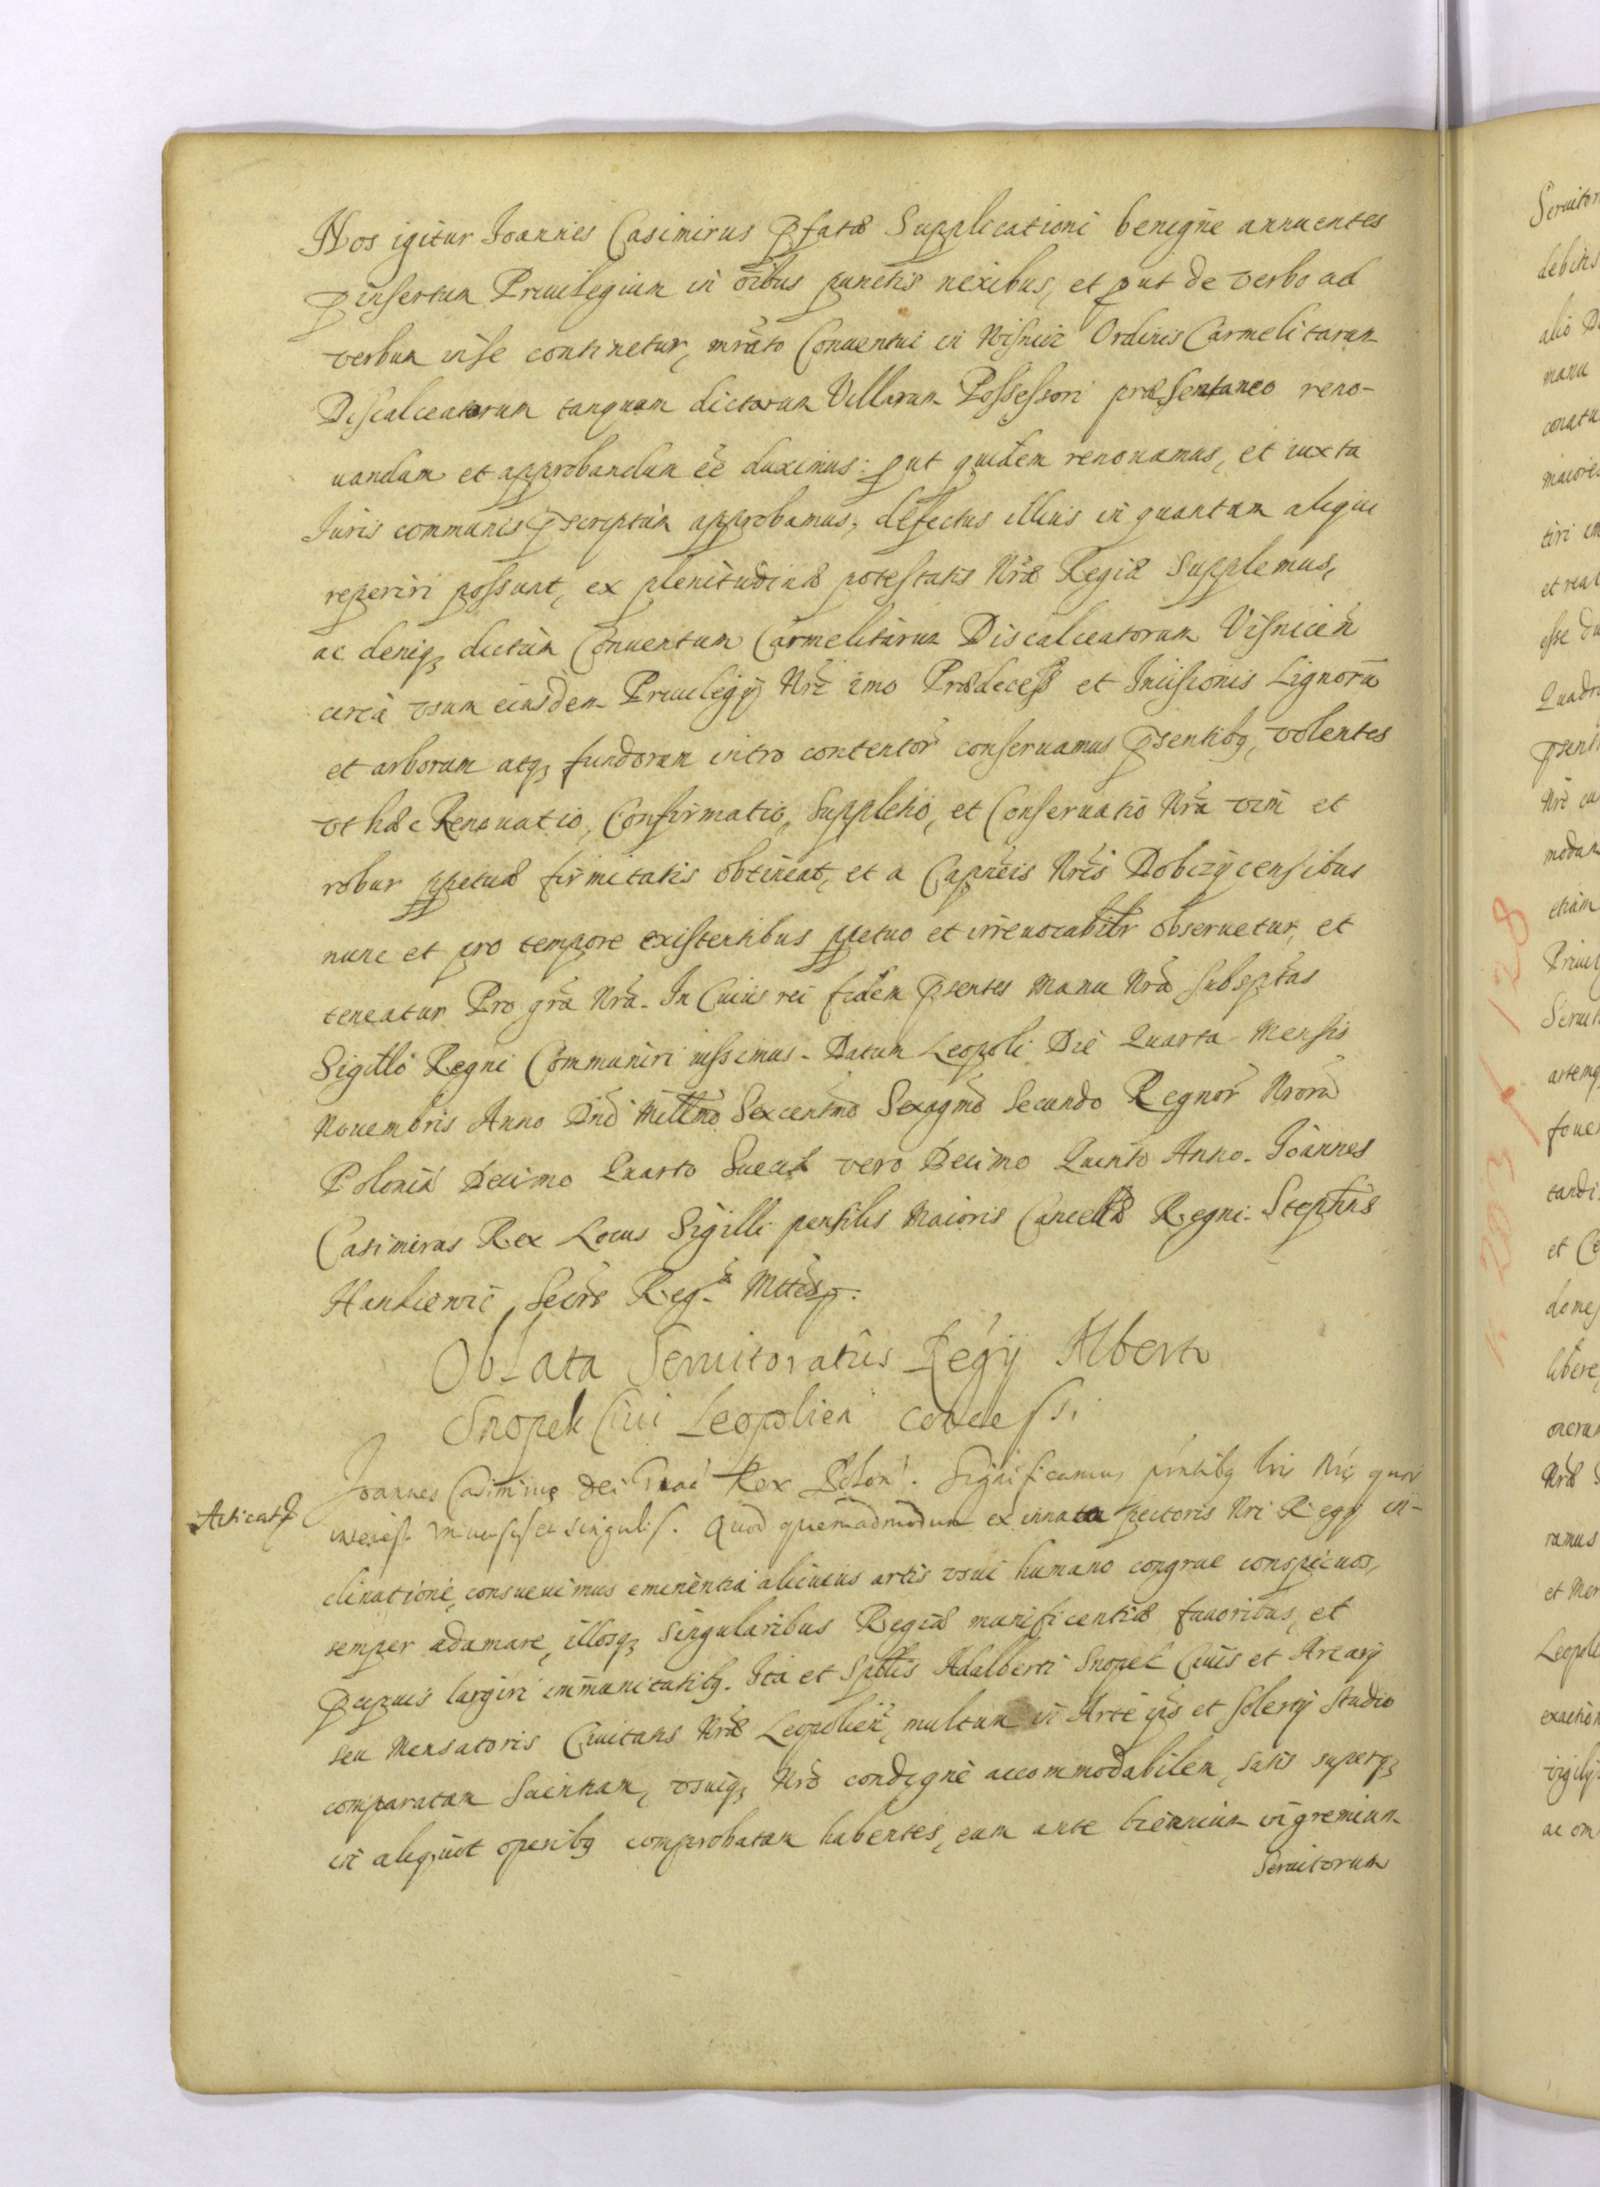 Nos igitur Joannes Casimirus pfatæ Supplicationi benigne annuentes
pinsertum Priuilegium in oĩbus punctis nexibus, et put de verbo ad
verbum in se continetur, mrãto Conuentui in Wisnicz Ordinis Carmelitarum
Discalceatorum tanquam dictarum Villarum Possessori præsentaneo reno-
uandum et approbandum eẽ duximus: put quidem renouamus, et iuxta
Juris communis pscriptum approbamus, defectus illius in quantum aliqui
reperiri possunt, ex plenitudine potestatis Nræ Regiæ Supplemus,
ac deniq, dictum Conuentum Carmelitarum Discalceatorum Visnicen
circa vsum eiusdem Priuilegij Nri imo Prædecess et Incisionis Lignorũ
et arborum atq, fundorum intro contentor conseruamus psentibq, volentes
vt hæc Renouatio, Confirmatio, Suppletio, et Conseruatio Nra vim et
robur ppetuæ firmitatis obtineat, et a Capneis Nris Dobczycensibus
nunc et pro tempore existentibus ppetuo et irreuocabilr obseruetur, et
teneatur Pro gra Nra. In Cuius rei fidem psentes Manu Nra subsptas
Sigillo Regni Communiri iussimus. Datum Leopoli Die Quarta Mensis
Nouembris Anno Dni Millmo Sexcentmo Sexagmo Secundo Regnor Nrorũ
Poloniæ Decimo Quarto Sueciæ vero Decimo Quinto Anno. Joannes
Casimirus Rex Locus Sigilli pensilis Maioris Cancellæ Regni. Stephns
Hankiewic Secrs Reg. Mttis
Oblata Seruitoratus Regij Alberto
Snopek Ciui Leopolien concessi
Joannes Casimirus Dei Gratia Rex Polon. Significamus pntibq lris Nris quor
Articats
interest vniuersis et singulis. Quod quemadmodum ex innata pectoris Nri Regij in-
clinatione, consueuimus eminentia alicuius artis vsui humano congrue conspicuos,
semper adamare, illosq, singularibus Regiæ munificentiæ fauoribus, et
pcipuis largiri immunitatibq. Ita et Spttis Adalberti Snopek Ciuis et Arcarij
seu Mensatoris Ciuitatis Nræ Leopolien, multum in Arte ips et solerti studio
comparatam Scientiam, vsuiq, Nro condigne accommodabilem, satis superq,
in aliquot operibq comprobatam habentes, eum ante biennium in gremium
Seruitorum